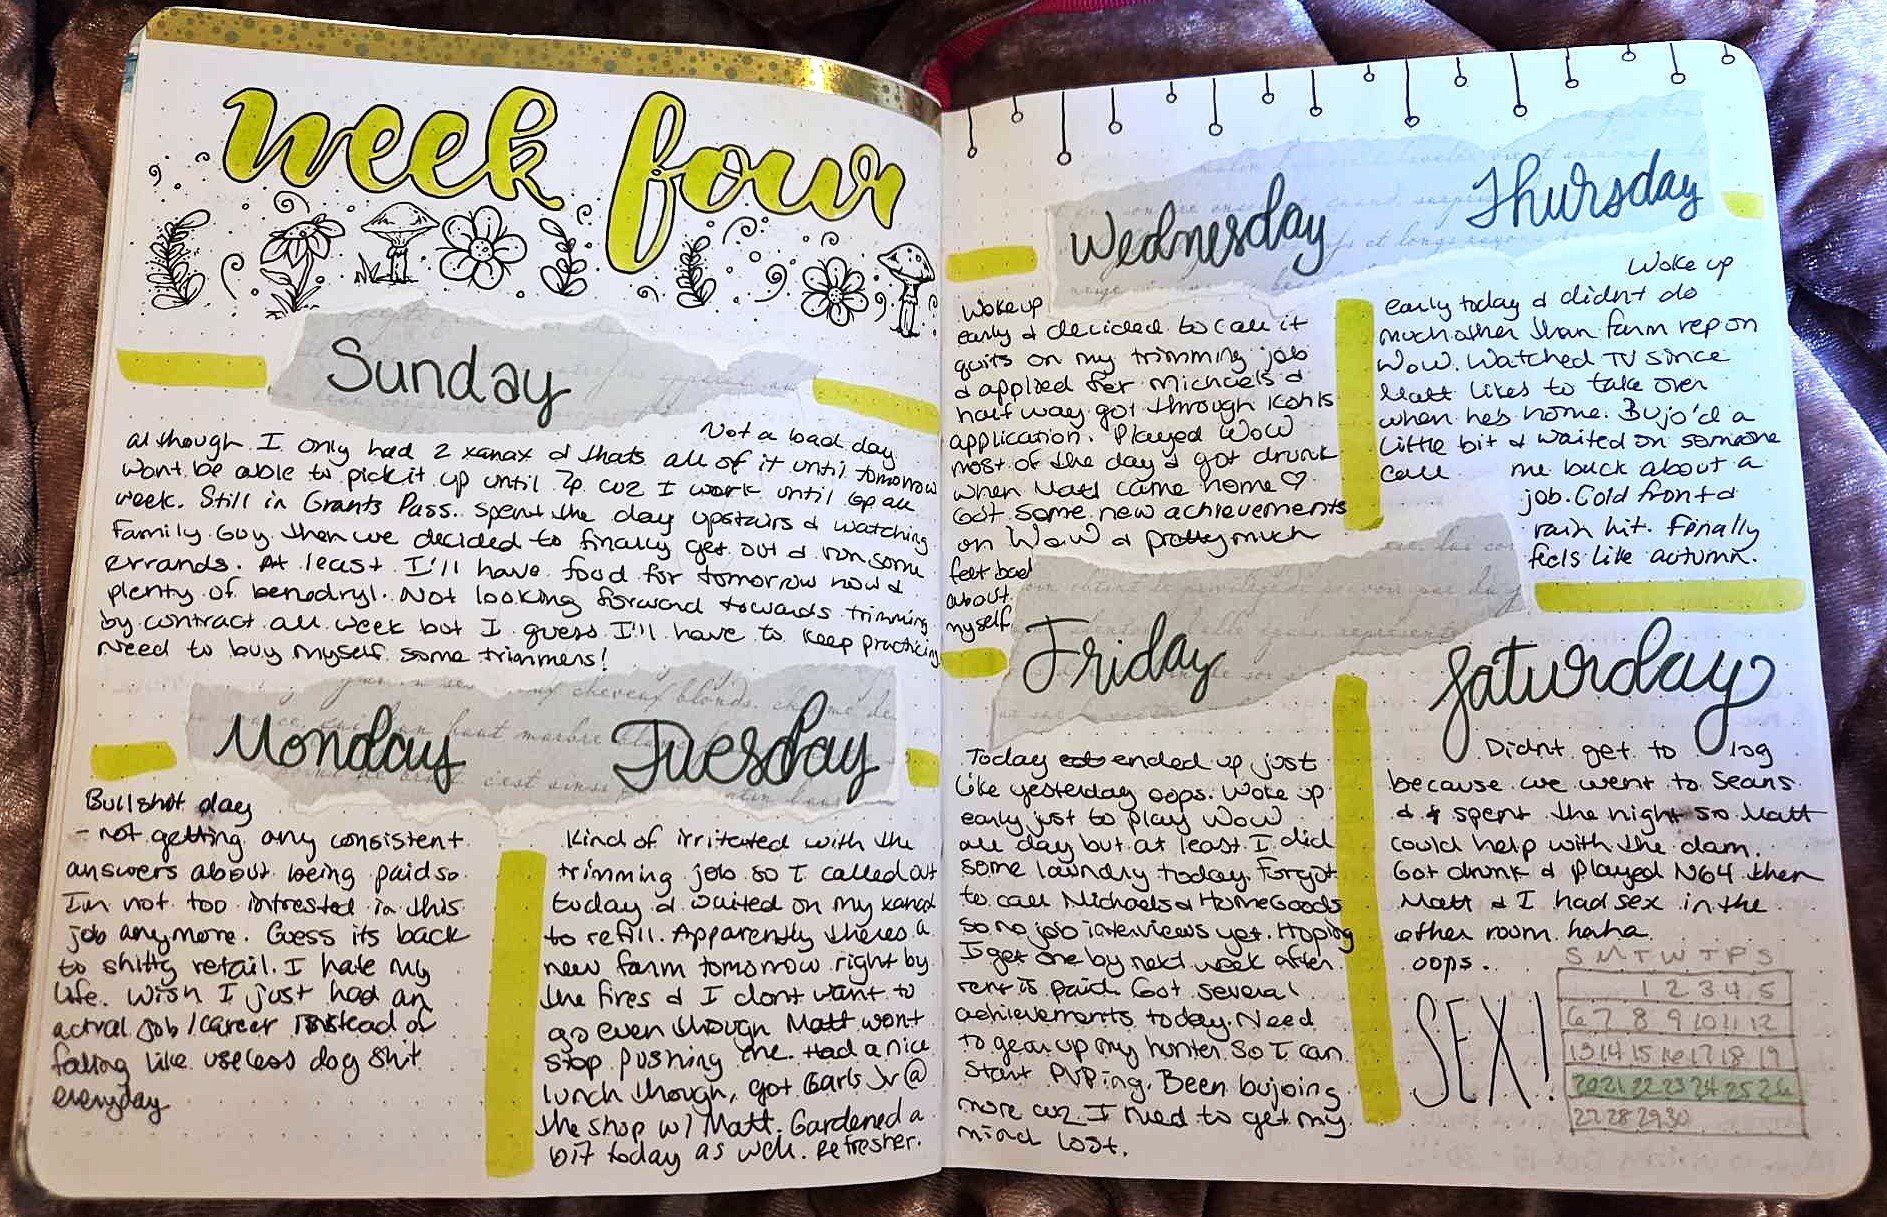 week four
Sunday
Not a bad day
although I only had 2 xanax & thats all of it until tomorrow
wont be able to pick it up until 7p cuz I work until 6p all
week. Still in Grants Pass. spent the day upstairs & watching
Family Guy then we decided to finally get out & run some
errands. At least I'll have food for tomorrow now &
plenty of benedryl. Not looking forward towards trimming
by contract all week but I guess I'll have to keep practicing
Need to buy myself some trimmers!
Monday
Bullshit day
- not getting any consistent
answers about being paid so
I'm not too intrested in this
job anymore. Guess its back
to shitty retail. I hate my
life. Wish I just had an
actual job/career instead of
falling like useless dog shit
everyday
Tuesday
Kind of irritated with the
trimming job so I called out
today & waited on my xanax
to refill. Apparently theres a
new farm tomorrow right by
the fires & I dont want to
go even though Matt wont
stop pushing me. Had a nice
lunch though, got Carls Jr @
the shop w/ Matt. Gardened a
bit today as well. Refresher.
Wednesday
Woke up
early & decided to call it
quits on my trimming job
& applied for Michaels &
half way got through Kohls
application. Played WoW
most of the day & got drunk
when Matt came home ♡
Got some new achievements
on WoW & pretty much
felt bad
about
myself
Thursday
Woke up
early today & didnt do
much other than farm rep on
WoW. Watched TV since
Matt likes to take over
when hes home. Bujo'd a
little bit & waited on someone
call me back about a
job. Cold front &
rain hit. Finally
feels like autumn.
Friday
Today ended up just
like yesterday oops. Woke up
early just to play WoW
all day but at least I did
some laundry today. Forgot
to call Michaels & HomeGoods
so no job interviews yet. Hoping
I get one by next week after
rent is paid. Got several
achievements today. Need
to gear up my hunter so I can
start PVPing. Been bujoing
more cuz I need to get my
mind lost.
Saturday
Didnt get to log
because we went to Seans
& spent the night so Matt
could help with the dam.
Got drunk & played N64 then
Matt & I had sex in the
other room haha
oops.
SEX!
S M T W T F S
1 2 3 4 5
6 7 8 9 10 11 12
13 14 15 16 17 18 19
20 21 22 23 24 25 26
27 28 29 30